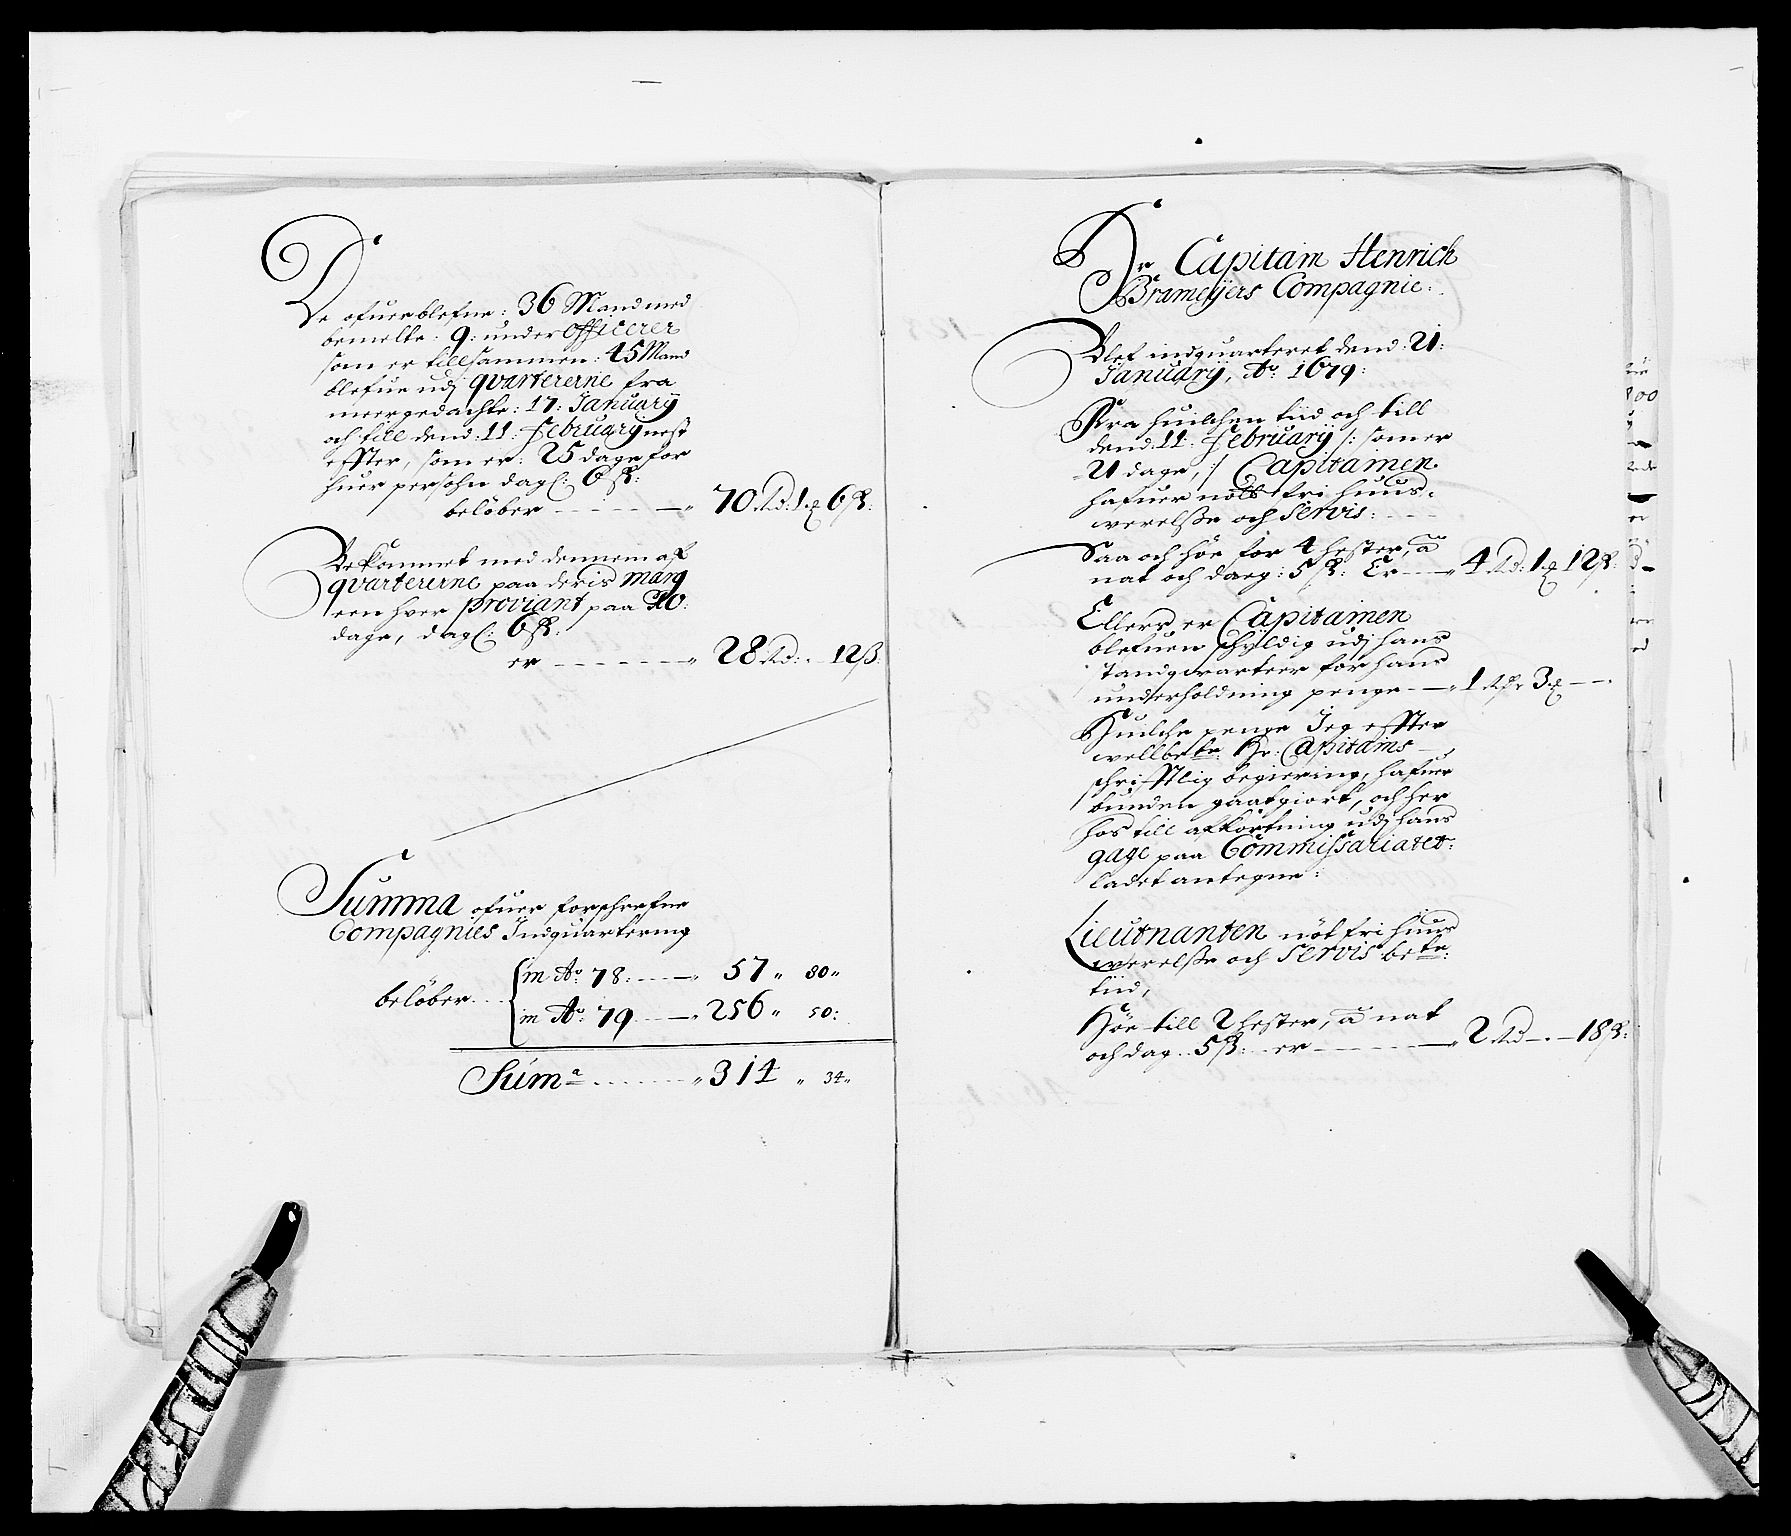 De ofuerblefne: 36 Mand med
bemelte: 9: under Officerer
som er tillsammen: 45 Mand
blefue udj qvartererne fra
meergedachte: 17: January
och till dend: 11: February nest
effter, som er: 25 dage for
huer persohn dagl: 6 sk:
beløber - - - - - 70 Rd: 1 x 6 sk:
Bekommet med dennem aff
qvartererne paa deris march
een hver proviant paa 10:
dage, dagl: 6 sk:
er - - - - - - 28 Rd: - 12 β:
Summa ofuer forschrefne
Compagnies Indquartering
beløber - - in Ao. 78: - - - 57 " 80 "
in Ao: 79 - - - 256 " 50:
Suma - - - - - - " 314 " 34 "
Hr Capitain Henrich
Brameijers Compagnie:
Blef indquarteret dend: 21:
January, Ao: 1679:
Fra huilchen tiid och till
dend: 11: February /: som er
21 dage, :/ Capitainen
hafuer nøtt fri huus-
werelsse och Servis: - - -
Saa och höe for 4 hester, ã
nat och dag: 5 sk: Er - - 4 Rd: 1 x 12 sk:
Ellers er Capitainen
blefuen schyldig udj hans
Landqvarteer for hans
underholdning penge - - 1 Rdr 3 x - -
Huilche penge Jeg effter
wellbete: Hr: Capitains
schrifftlig begiering, hafuer
bunden gaatgiort, och her
hos till afkortning udj hans
gage paa Commissariatet
ladet antegne:
Lieutnanten nöt fri huus
werelsse och Servis bete:
tiid,
Höe till 2 hester, ã nat
och dag - 5 sk: - er - - - - - 2 Rd - - 18 sk: